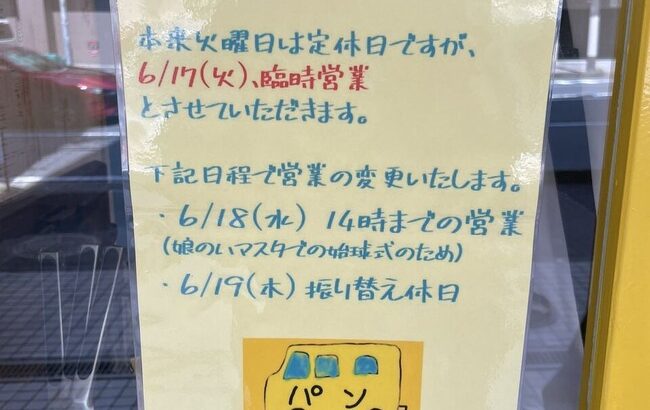 本来火曜日は定休日ですが、
6/17(火)、臨時営業
とさせていただきます。
下記日程で営業の変更いたします。
・6/18(水) 14時までの営業
(娘のハマスタでの始球式のため)
・6/19(木) 振り替え休日
パン